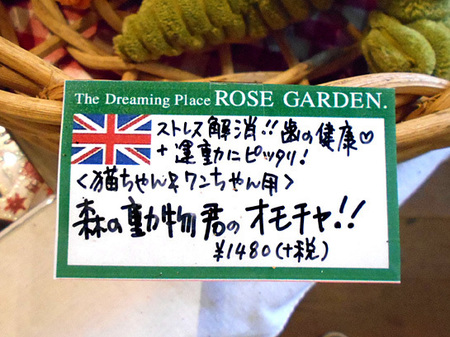 The Dreaming Place ROSE GARDEN.
ストレス解消!! 歯の健康♡
+運動にピッタリ!
<猫ちゃん&ワンちゃん用>
森の動物君のオモチャ!!
¥1480(+税)